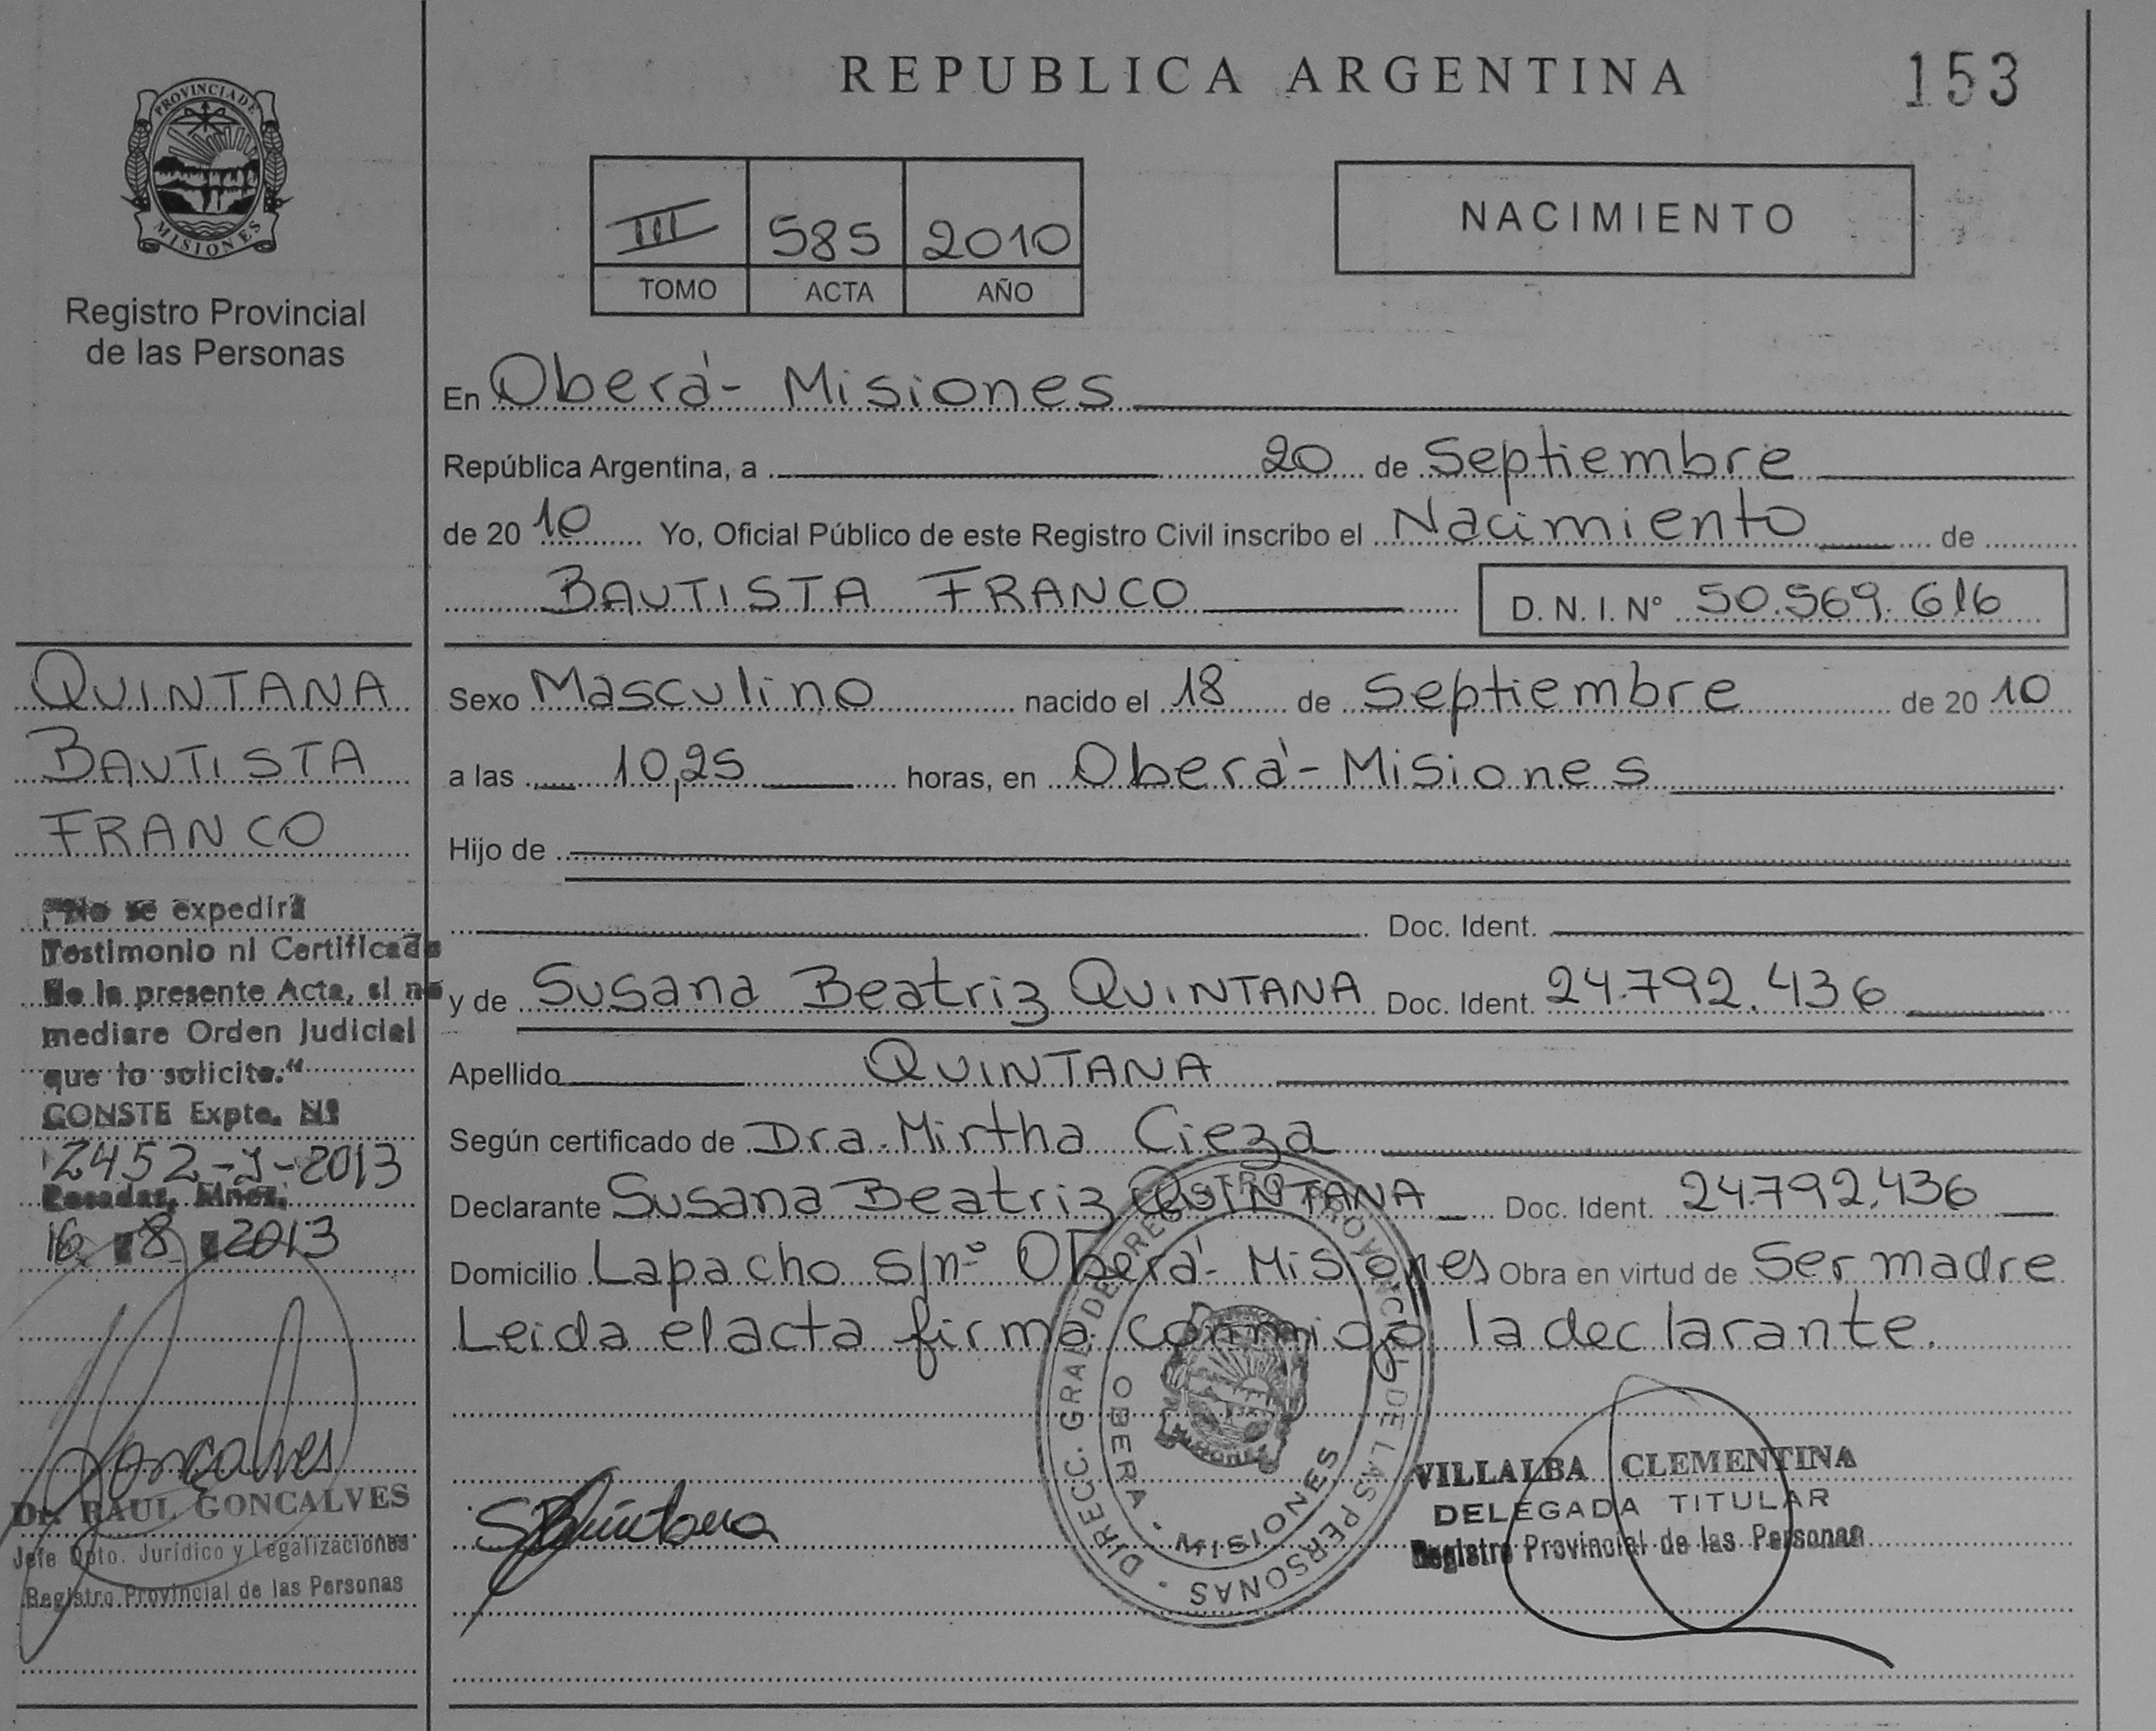 REPUBLICA ARGENTINA
153
PROVINCIA DE
MISIONES
Registro Provincial
de las Personas
III 585 2010
TOMO ACTA AÑO
NACIMIENTO
En Oberá - Misiones
República Argentina, a 20 de Septiembre
de 20 10 Yo, Oficial Público de este Registro Civil inscribo el Nacimiento de
BAUTISTA FRANCO D. N. I. Nº 50.569.616
Sexo Masculino nacido el 18 de Septiembre de 20 10
a las 10,25 horas, en Oberá - Misiones
Hijo de
Doc. Ident.
y de Susana Beatriz QUINTANA Doc. Ident. 24.792.436
Apellido QUINTANA
Según certificado de Dra. Mirtha Cieza
Declarante Susana Beatriz QUINTANA Doc. Ident. 24.792.436
Domicilio Lapacho s/nº Oberá - Misiones Obra en virtud de Ser madre
Leida el acta firma conmigo la declarante.
QUINTANA
BAUTISTA
FRANCO
"No se expedirá
Testimonio ni Certificado
De la presente Acta, si no
mediare Orden Judicial
que lo solicite."
CONSTE Expte. Nº
2452-J-2013
Posadas, Mnes.
16 8 2013
Goncalves
Dr. RAUL GONCALVES
Jefe Dpto. Jurídico y Legalizaciones
Registro Provincial de las Personas
SBQuintana
DIRECC. GRAL. DE REGISTRO PROVINCIAL DE LAS PERSONAS
OBERA - MISIONES
VILLALBA CLEMENTINA
DELEGADA TITULAR
Registro Provincial de las Personas